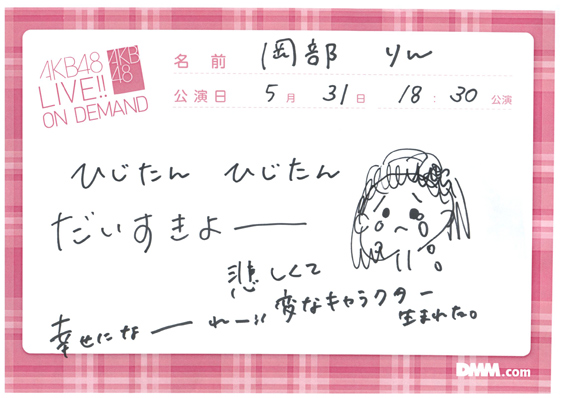 AKB48
LIVE!!
ON DEMAND
AKB
48
名 前 岡部 りん
公演日 5月 31日 18:30公演
ひじたん ひじたん
だいすきよー
悲しくて
変なキャラクター
生まれた。
幸せになーれー!!
DMM.com